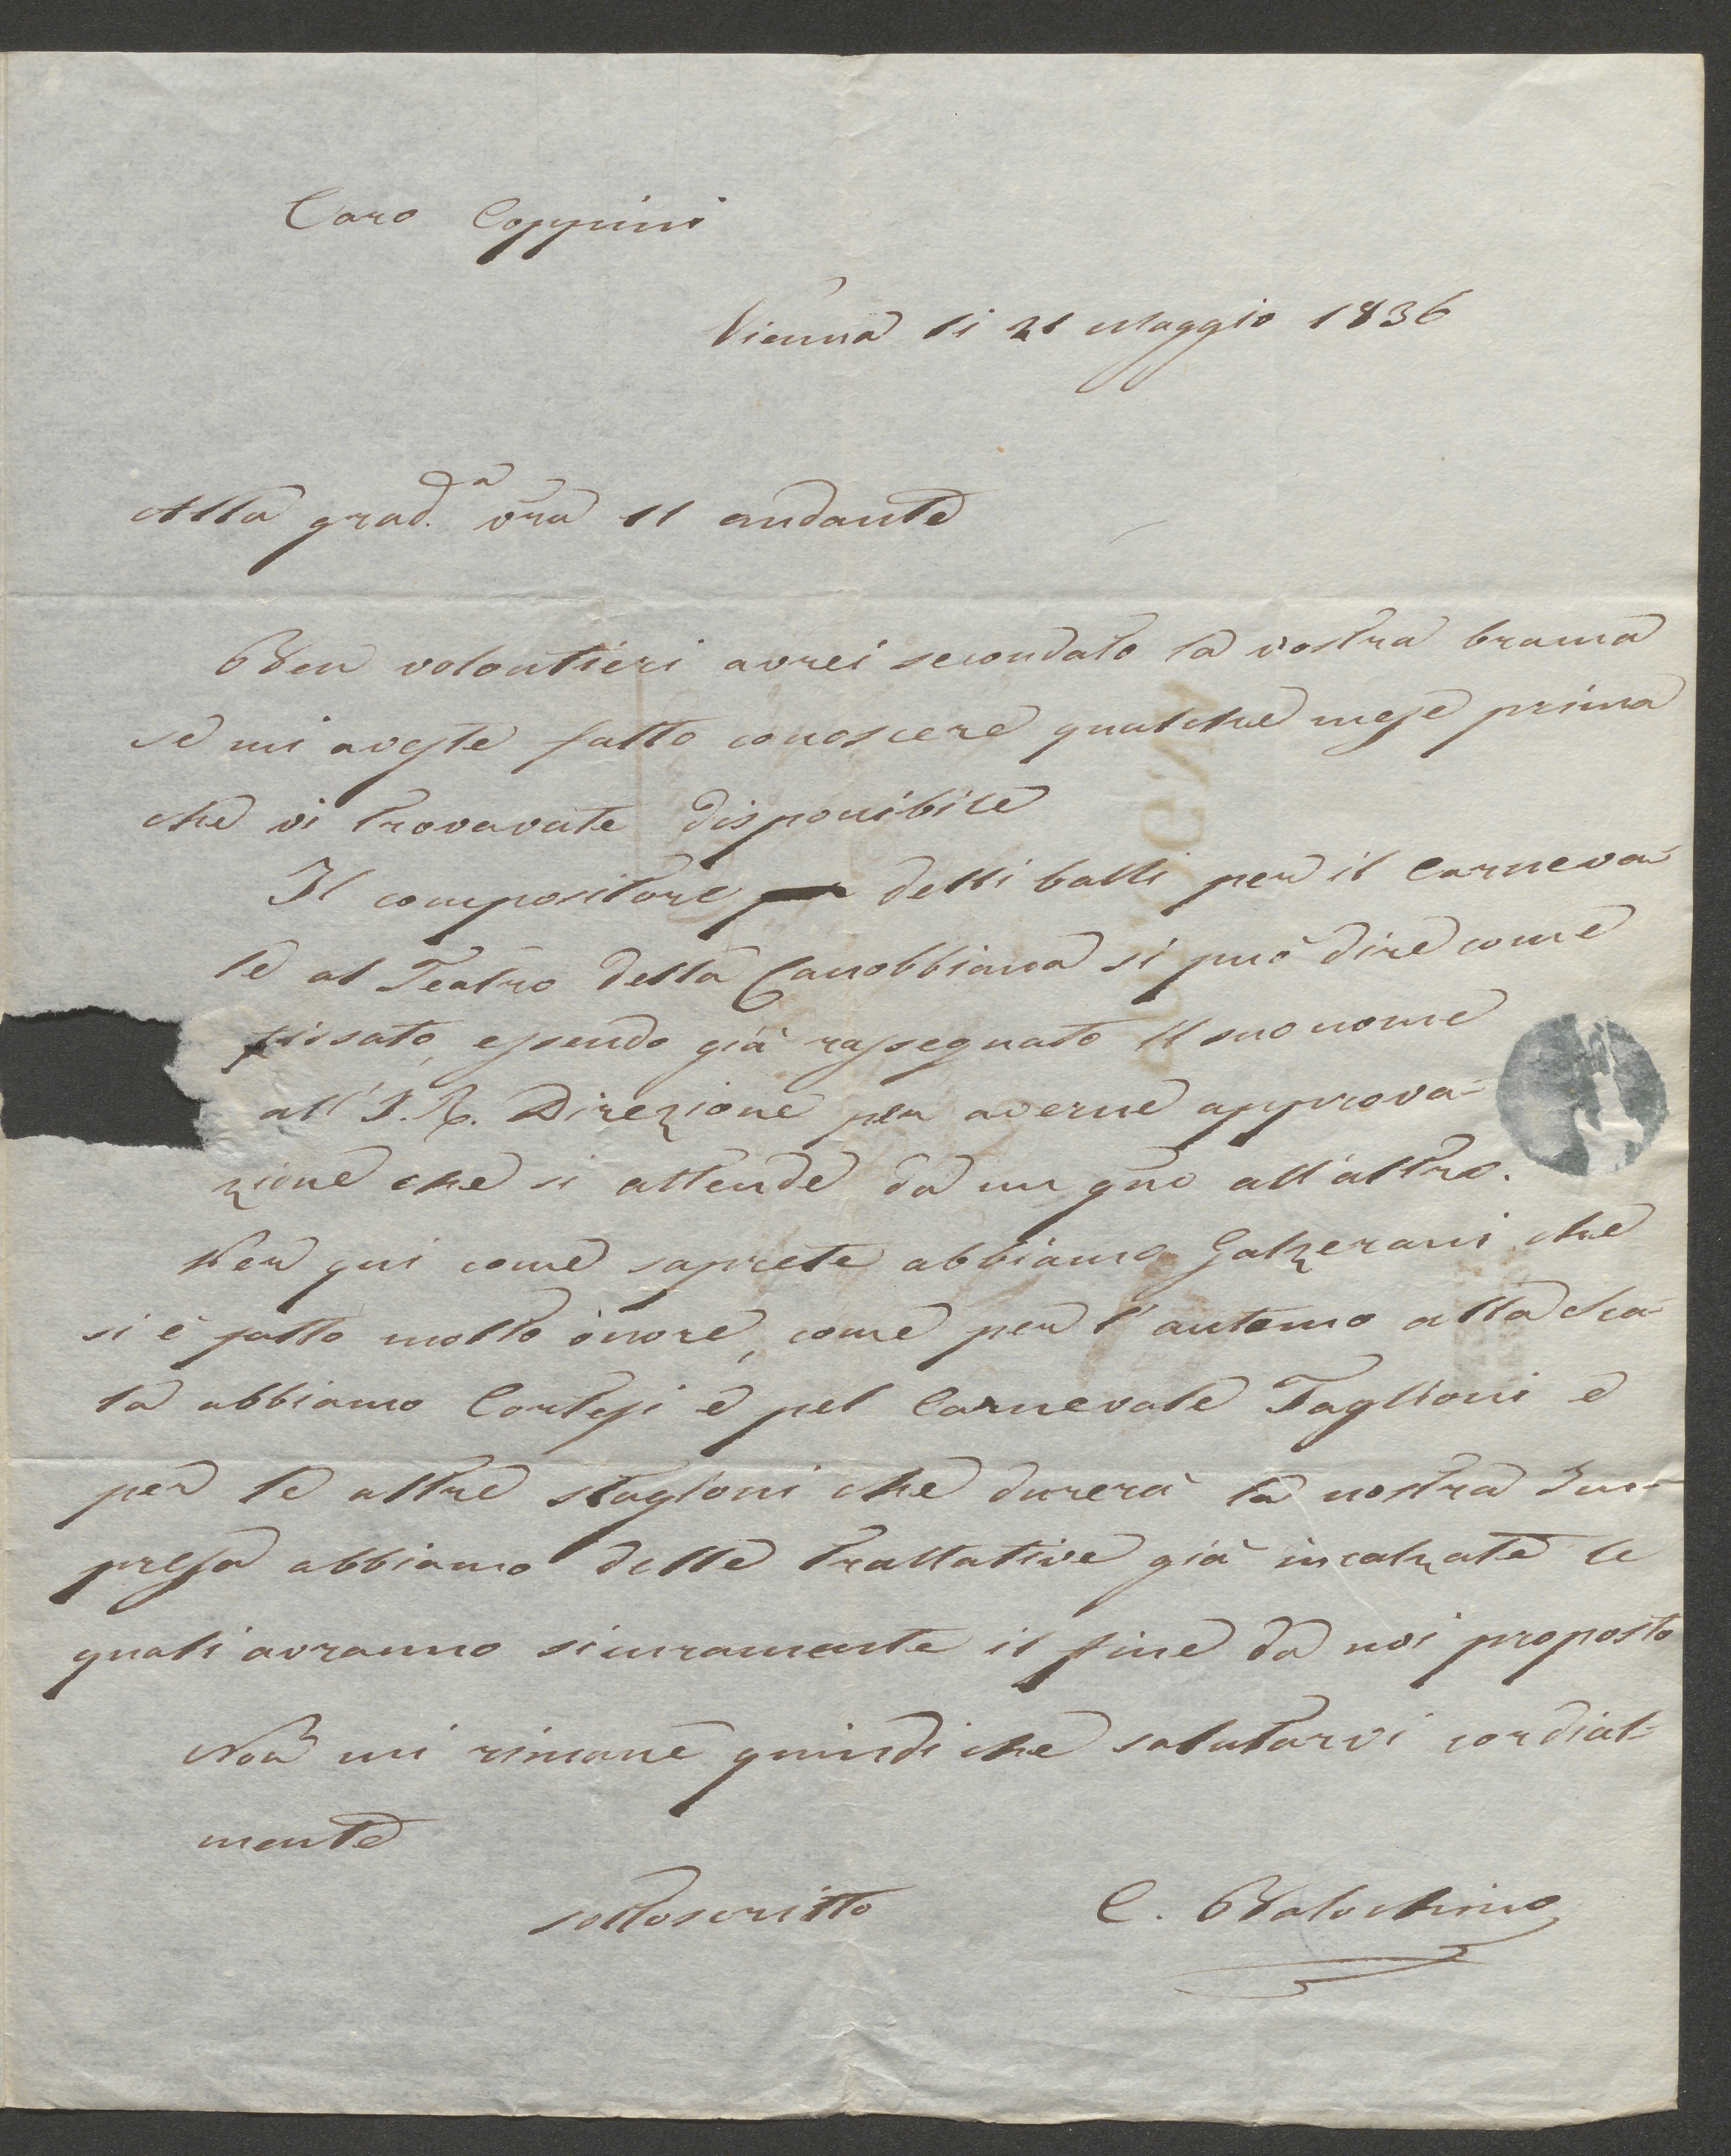 Caro Coppini
Vienna li 21 Maggio 1836
Alla grad.a vra 11 andante
Ben volontieri avrei secondato la vostra brama
se mi aveste fatto conoscere qualche mese prima
che vi trovavate disponibile
Il compositore delli balli per il Carneva-
le al Teatro della Canobbiana si può dire come
fissato, essendo già rassegnato il suo nome
all'I. R. Direzione per averne approva-
zione che si attende da un gno all'altro.
Per qui come saprete abbiamo Galzerani che
si è fatto molto onore, come per l'autonno alla Sca-
la abbiamo Cortesi e pel Carnevale Taglioni e
per le altre stagioni che durerà la nostra Im-
presa abbiamo delle trattative già incalzate le
quali avranno sicuramente il fine da noi proposto
Non mi rimane quindi che salutarvi cordial-
mente
sottoscritto C. Balochino